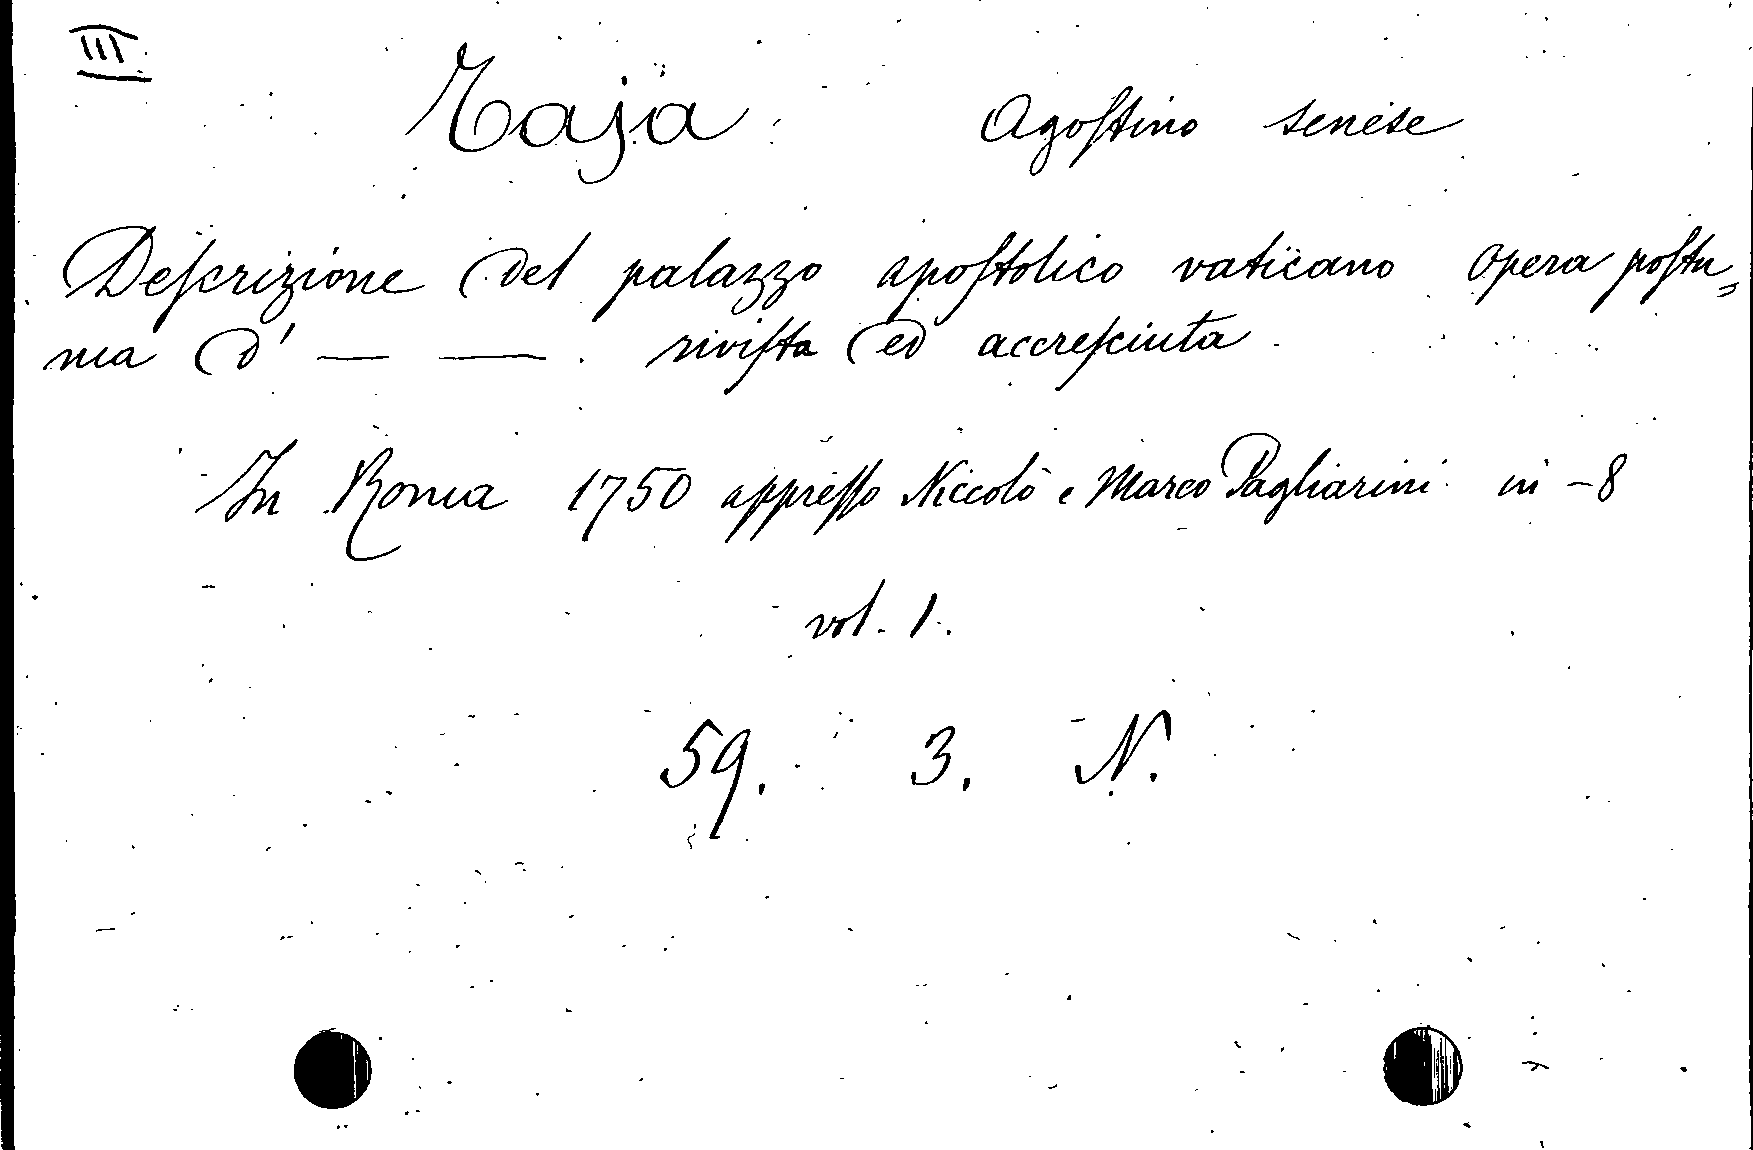 III.
Taja Agostino senese
Descrizione del palazzo apostolico vaticano opera postu=
ma d' — — . rivista ed accresciuta
In Roma 1750 appresso Niccolò e Marco Pagliarini in-8
vol. 1.
59. 3. N.